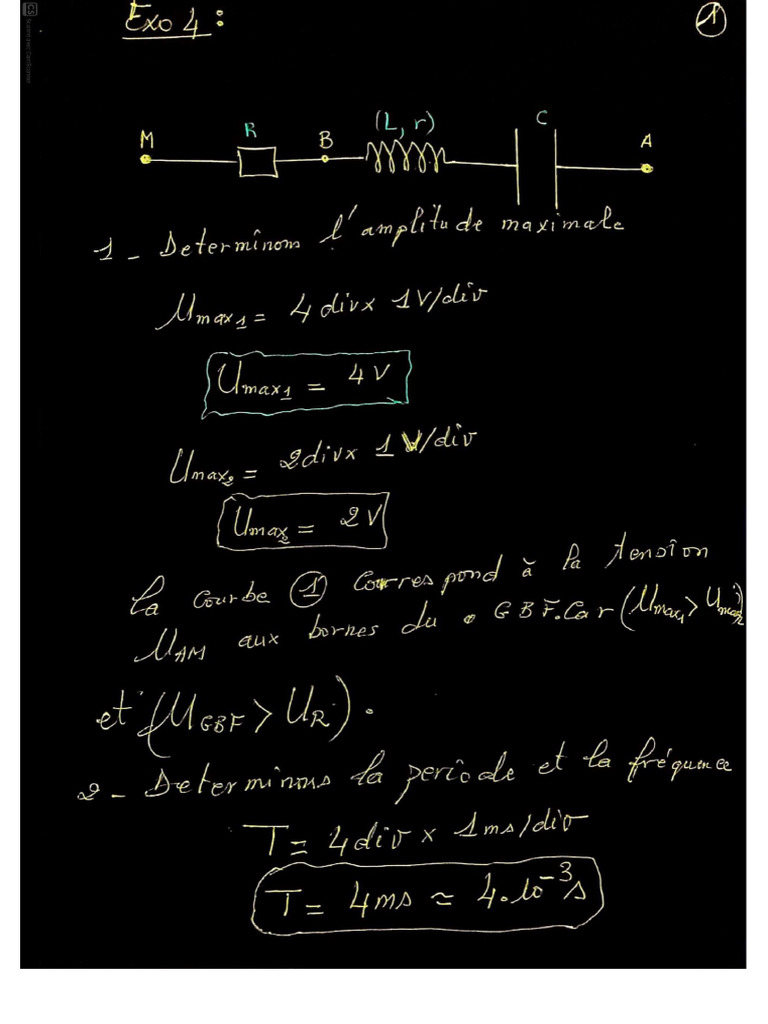 Exo 4 :
1
M R B (L, r) C A
1 - Determinons l'amplitude maximale
Umax1 = 4 div x 1V/div
Umax1 = 4V
Umax2 = 2div x 1 V/div
Umax2 = 2V
la courbe ① Correspond à la tension
UAM aux bornes du GBF. Car (Umax1 > Umax2)
et (UGBF > UR).
2 - Determinons la periode et la fréquence
T = 4div x 1ms/div
T = 4ms ≃ 4.10⁻³s